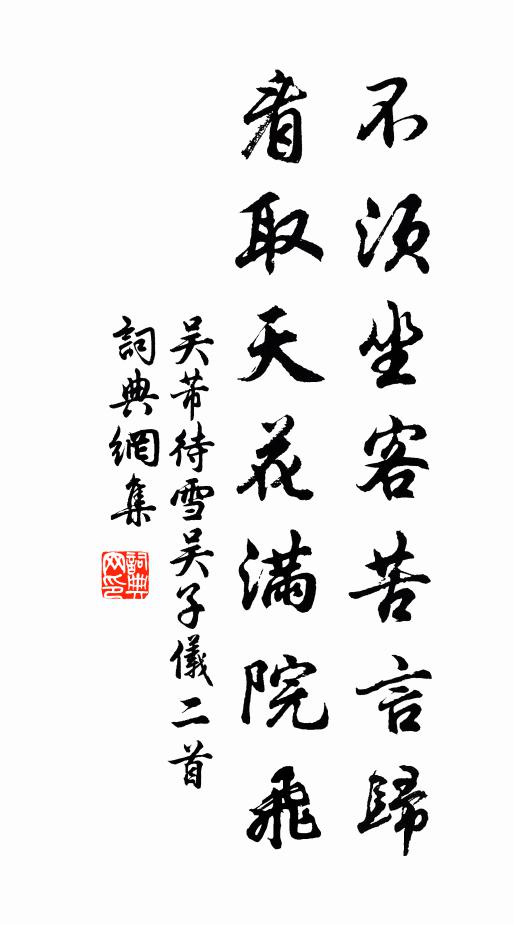 不須坐客苦言歸
看取天花滿院飛
吳芾待雪吳子儀二首
詞典網集
詞典
网印